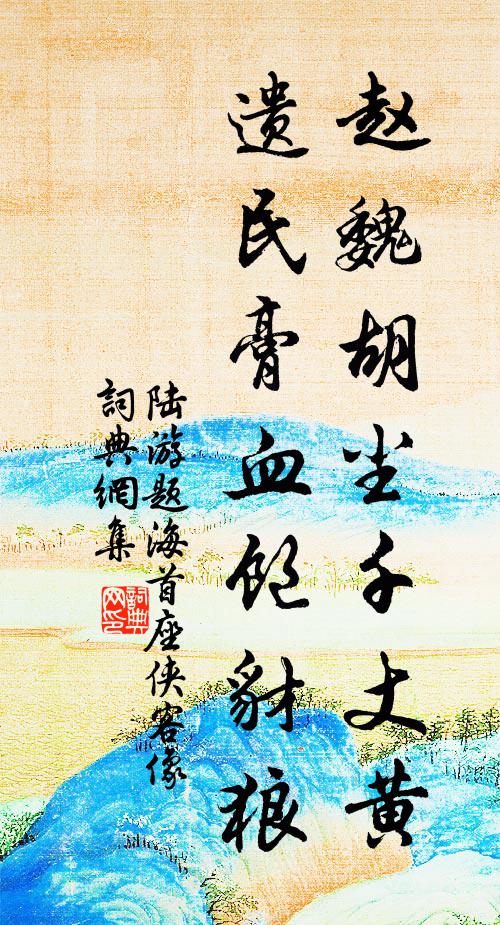 赵魏胡尘千丈黄
遗民膏血饱豺狼
陆游题海首座侠客像
词典網集
詞典网印